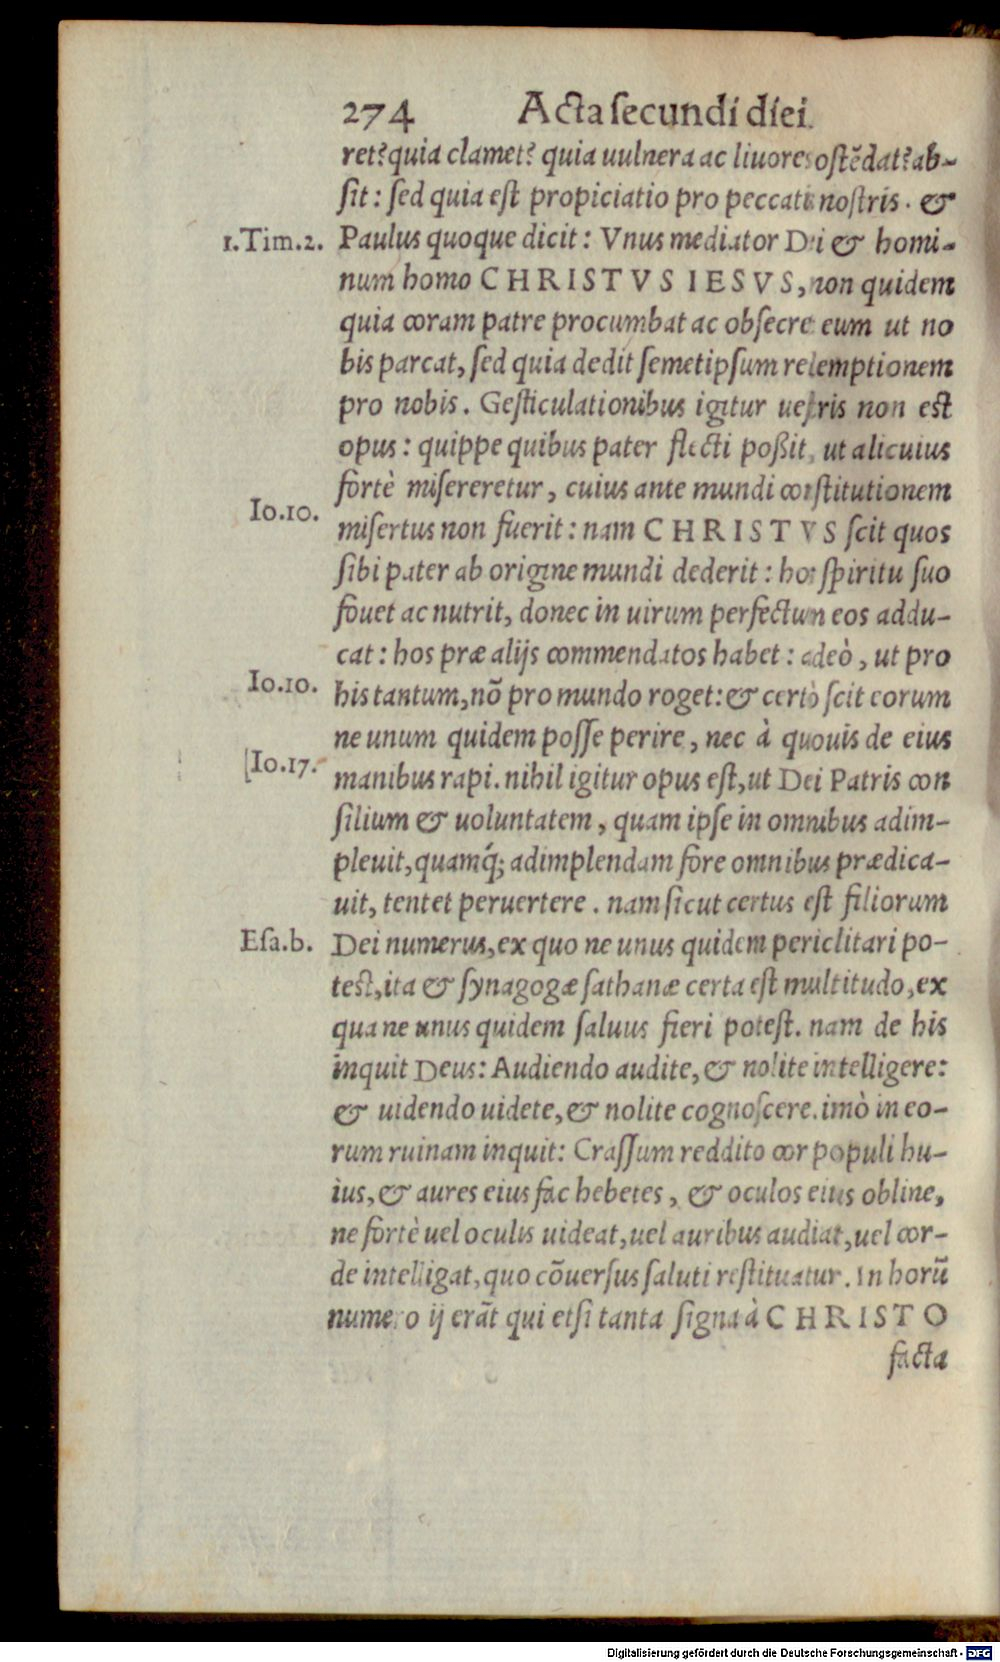 274 Acta secundi diei.
ret? quia clamet? quia uulnera ac liuores ostẽdat? ab-
sit: sed quia est propiciatio pro peccatis nostris. &
1.Tim.2. Paulus quoque dicit: Vnus mediator Dei & homi-
num homo CHRISTVS IESVS, non quidem
quia coram patre procumbat ac obsecret eum ut no
bis parcat, sed quia dedit semetipsum redemptionem
pro nobis. Gesticulationibus igitur uestris non est
opus: quippe quibus pater flecti poßit, ut alicuius
fortè misereretur, cuius ante mundi constitutionem
Io.10. misertus non fuerit: nam CHRISTVS scit quos
sibi pater ab origine mundi dederit: hos spiritu suo
fouet ac nutrit, donec in uirum perfectum eos addu-
cat: hos præ alijs commendatos habet: adeò, ut pro
Io.10. his tantum, nõ pro mundo roget: & certò scit eorum
ne unum quidem posse perire, nec à quouis de eius
Io.17. manibus rapi. nihil igitur opus est, ut Dei Patris con
silium & uoluntatem, quam ipse in omnibus adim-
pleuit, quamq́; adimplendam fore omnibus prædica-
uit, tentet peruertere. nam sicut certus est filiorum
Esa.b. Dei numerus, ex quo ne unus quidem periclitari po-
test, ita & synagogæ sathanæ certa est multitudo, ex
qua ne unus quidem saluus fieri potest. nam de his
inquit Deus: Audiendo audite, & nolite intelligere:
& uidendo uidete, & nolite cognoscere. imò in eo-
rum ruinam inquit: Crassum reddito cor populi hu-
ius, & aures eius fac hebetes, & oculos eius obline,
ne fortè uel oculis uideat, uel auribus audiat, uel cor-
de intelligat, quo cõuersus saluti restituatur. In horũ
numero ij erãt qui etsi tanta signa à CHRISTO
facta
Digitalisierung gefördert durch die Deutsche Forschungsgemeinschaft - DFG